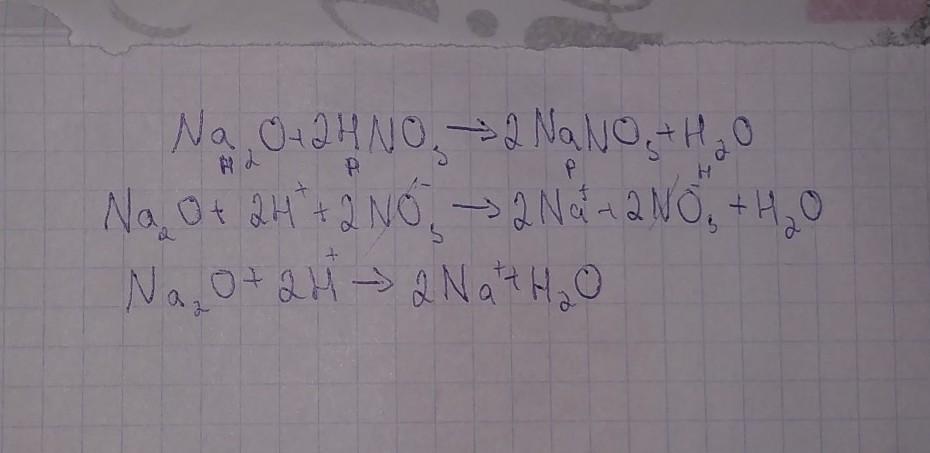 Na₂O+2HNO₃→2NaNO₃+H₂O
н р р н
Na₂O+2H⁺+2NO₃⁻→2Na⁺+2NO₃⁻+H₂O
Na₂O+2H⁺→2Na⁺+H₂O